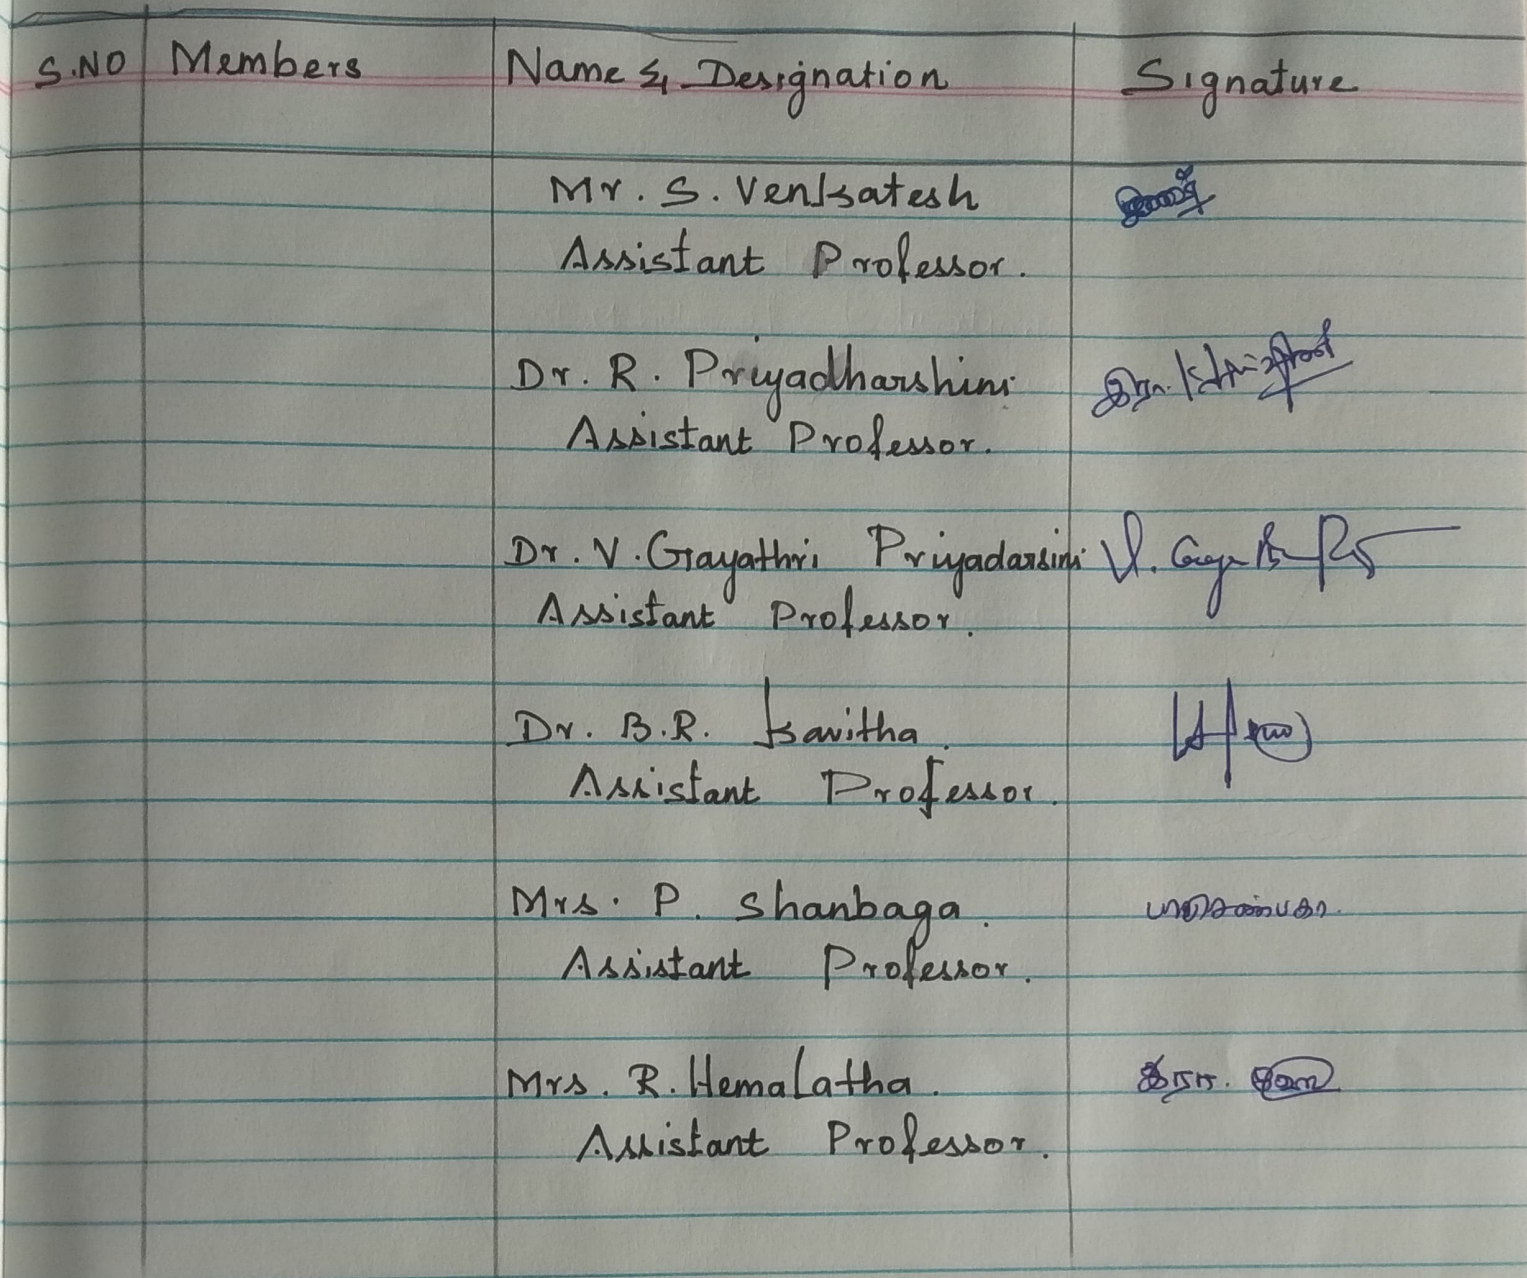 S.NO Members Name & Designation Signature
Mr. S. Venkatesh
Assistant Professor.
Dr. R. Priyadharshini
Assistant Professor.
Dr. V. Gayathri Priyadarsini
Assistant Professor.
Dr. B.R. Kavitha.
Assistant Professor.
Mrs. P. Shanbaga. பா செண்பகா.
Assistant Professor.
Mrs. R. Hemalatha. இரா.
Assistant Professor.